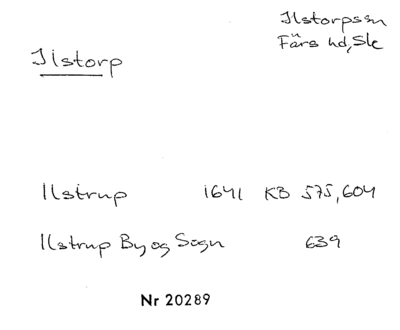 Ilstorpssn
Färs hd, Sk
Ilstorp
Ilstrup 1641 KB 575, 604
Ilstrup By og Sogn 639
Nr 20289